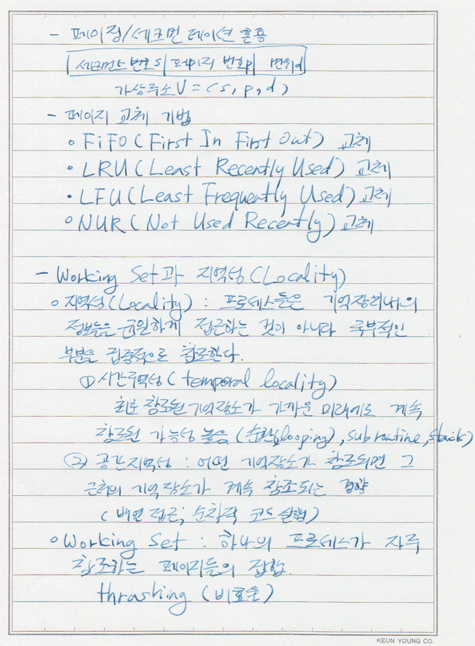 - 페이징/세그먼테이션 혼용
세그먼트 번호 s | 페이지 번호 p | 변위 d
가상주소 V = (s, p, d)
- 페이지 교체 기법
• FiFO (First In First Out) 교체
• LRU (Least Recently Used) 교체
• LFU (Least Frequently Used) 교체
• NUR (Not Used Recently) 교체
- Working Set과 지역성 (Locality)
• 지역성 (Locality) : 프로세스들은 기억장치내의
정보들을 균일하게 접근하는 것이 아니라 국부적인
부분을 집중적으로 참조한다.
① 시간구역성 (temporal locality)
최근 참조된 기억장소가 가까운 미래에도 계속
참조될 가능성 높음 (순환, looping), subroutine, stack)
② 공간지역성 : 어떤 기억장소가 참조되면 그
근처의 기억장소가 계속 참조되는 경향
(배열 접근, 순차적 코드 실행)
• Working Set : 하나의 프로세스가 자주
참조하는 페이지들의 집합.
thrashing (비효율)
KEUN YOUNG CO.